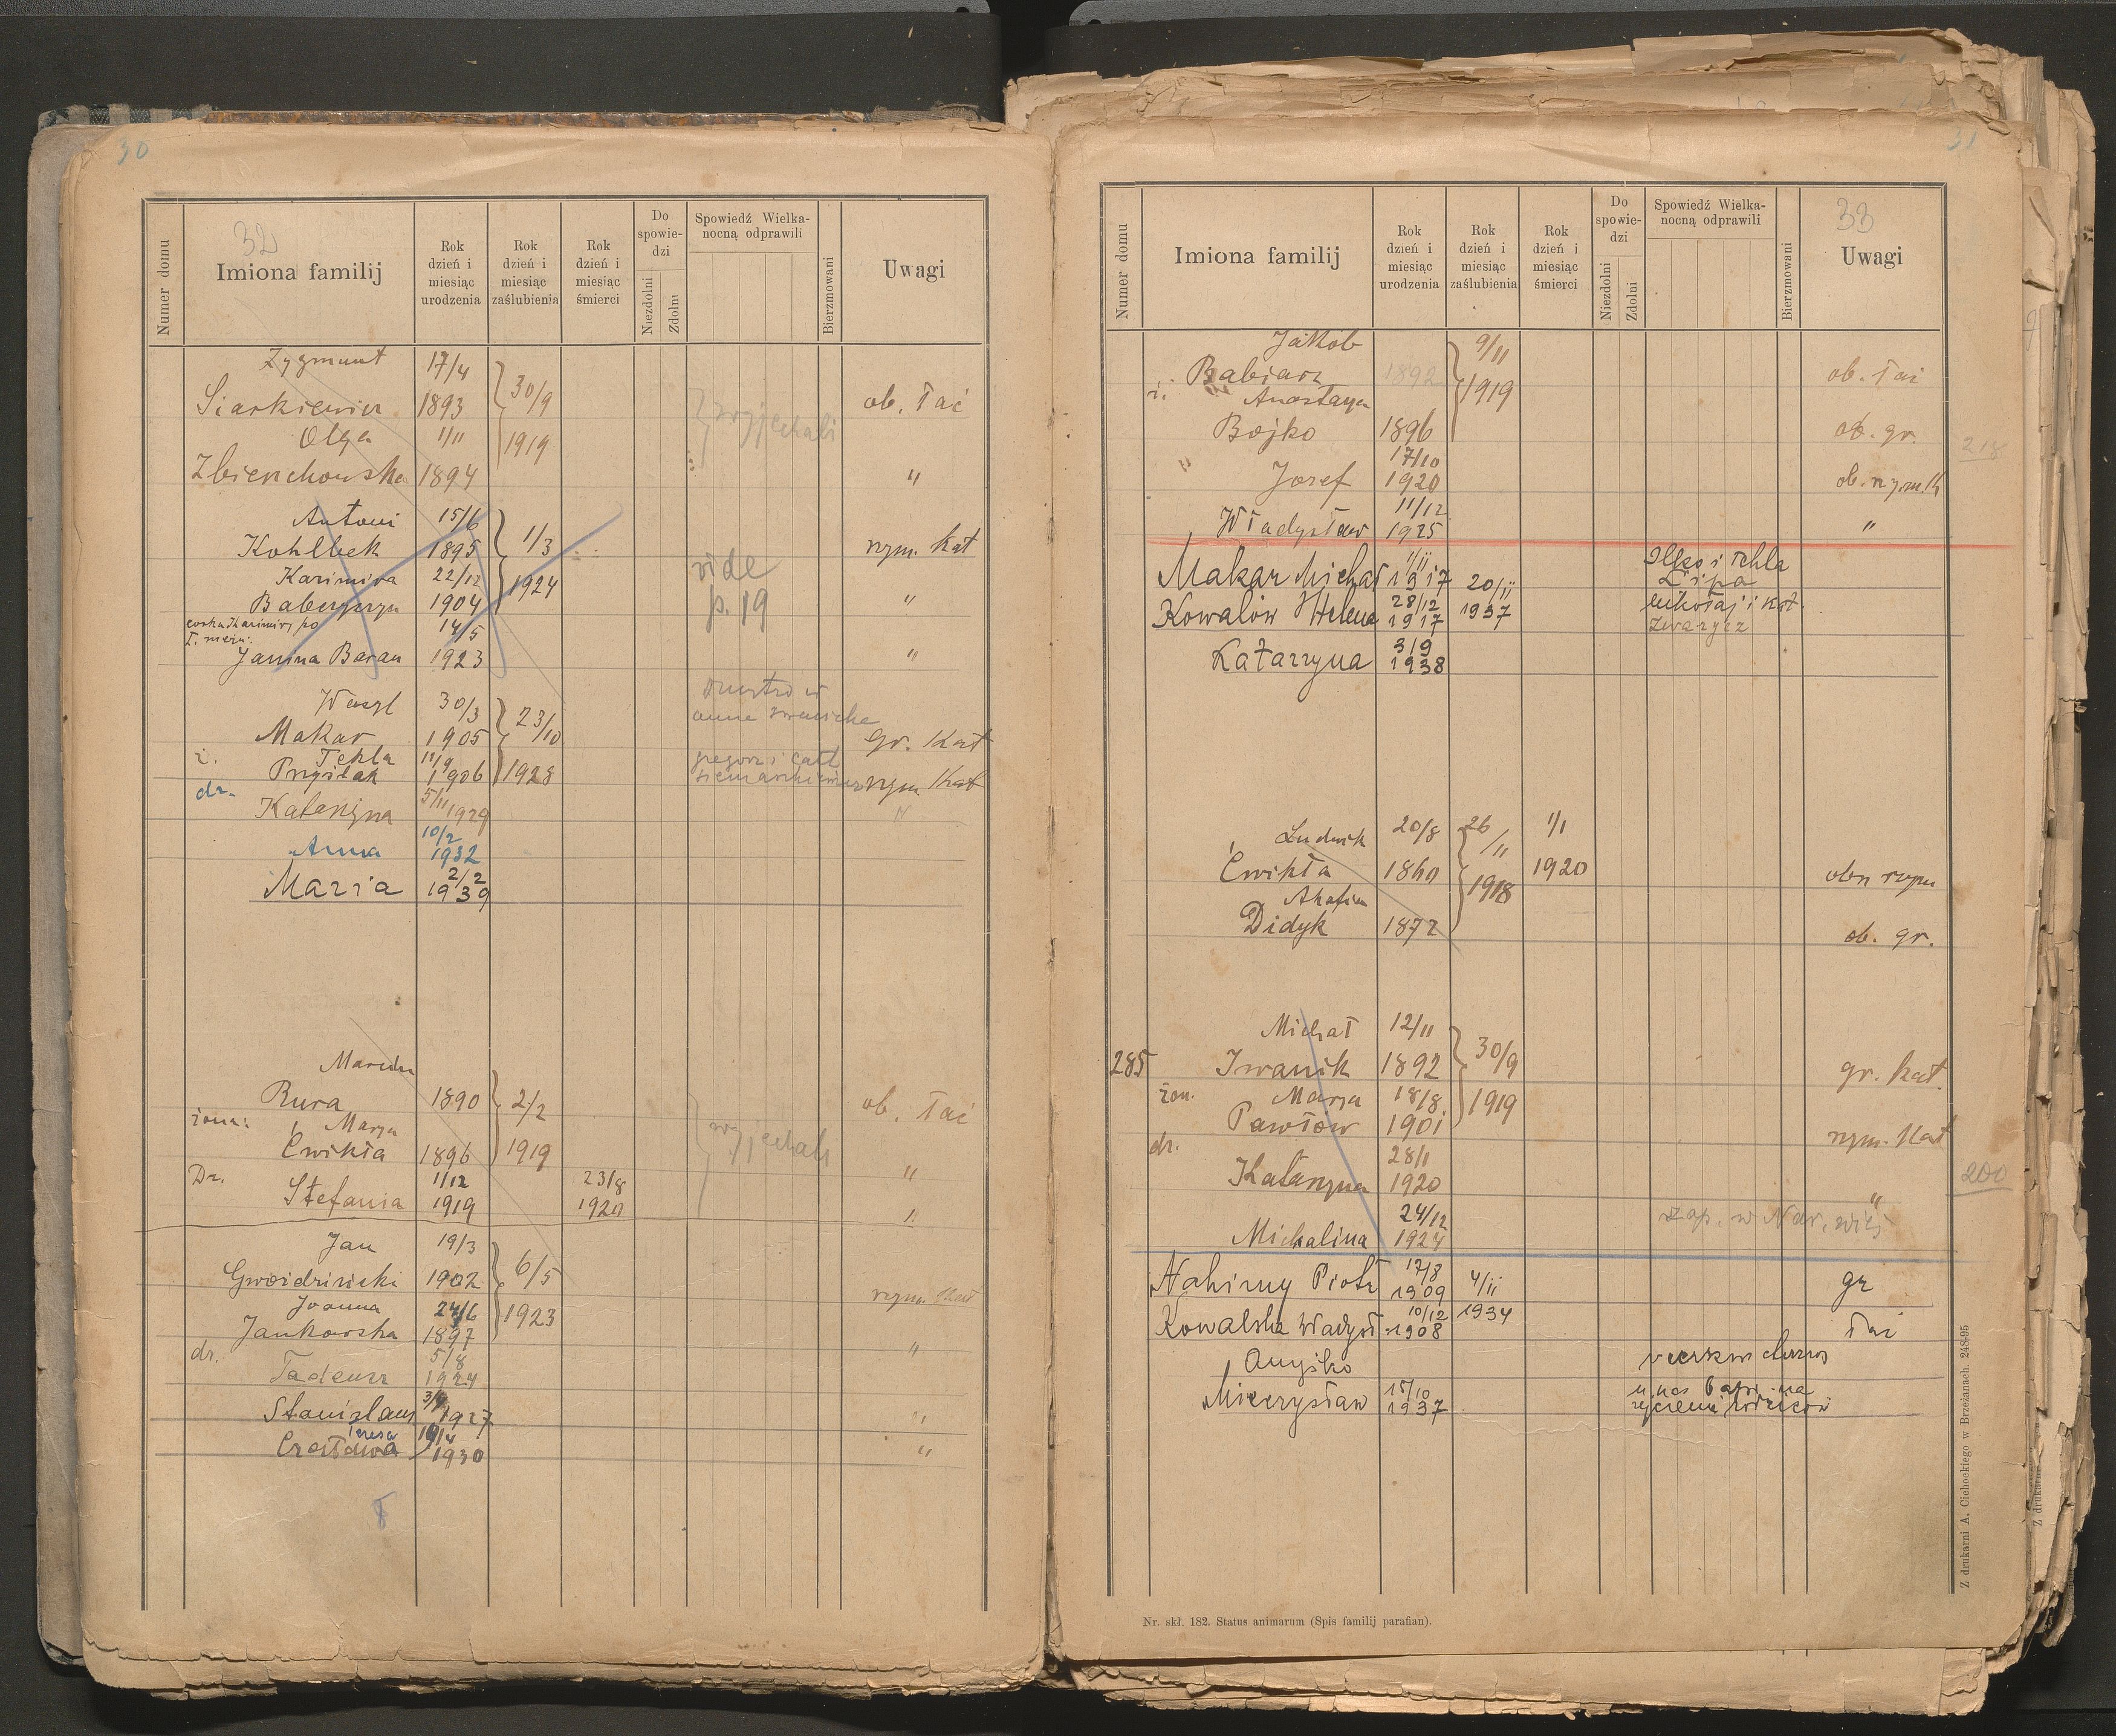 30
32
Numer domu
Imiona familij
Rok dzień i miesiąc urodzenia
Rok dzień i miesiąc zaślubienia
Rok dzień i miesiąc śmierci
Do spowiedzi
Niezdolni
Zdolni
Spowiedź Wielkanocną odprawili
Bierzmowani
Uwagi
Zygmunt 17/4
Siarkiewicz 1893 30/9 ob. łać
Olga 1/11 1919 wyjechali
1894 "
Antoni 15/6
Kohlbek 1895 1/3 rzym. Kat
Kazimira 22/12 1924 vide
1904 p. 19 "
14/5
Janina Baran 1923 "
Wasyl 30/3
Makar 1905 23/10 gr. Kat
ż. Tekla
Pryślak 1906 1928 rzym Kat
dr. 5/11
Katarzyna 1929 "
10/2
Anna 1932
2/2
Maria 1939
Rura 1890 2/2 ob. łać
żona: Marya
Ćwikła 1896 1919 wyjechali "
Dr. 1/12 23/8
Stefania 1919 1920
Jan 19/3
1902 6/5
Joanna 24/6 rzym. Kat
Jankowska 1897 1923
dr. 5/8 "
Tadeusz 1924
Stanisław 1927 "
Teresa
Czesława 1930 "
31
33
Numer domu
Imiona familij
Rok dzień i miesiąc urodzenia
Rok dzień i miesiąc zaślubienia
Rok dzień i miesiąc śmierci
Do spowiedzi
Niezdolni
Zdolni
Spowiedź Wielkanocną odprawili
Bierzmowani
Uwagi
Jakób 9/11
Babiarz 1892 1919 ob. łać
ż. Anastazya
Bojko 1896 ob. gr.
218
17/10
Józef 1920 ob. rzym. K
11/12
Władysław 1925 "
Makar Michał 1917 20/II Ilko i Tekla
Lipa
Kowalów Helena 28/12 1917 1937 Mikołaj i Kat.
Zwarycz
3/9
Katarzyna 1938
Ludwik 20/8 26/11 1/1
Ćwikła 1860 1918 1920
Didyk 1872 ob. gr.
Michał 12/11
285 Iwanik 1892 30/9 gr. kat.
żon. Marya 18/8 1919
Pawłów 1901 rzym. Kat
dr. 28/1
Katarzyna 1920 "
200
24/12 zap. w Nar.
Michalina 1924
Nahirny Piotr 17/8 1909 4/II gr
Kowalska Władysł. 10/12 1908 1934 łać
Mieczysław 15/10 1937
Nr. skł. 182. Status animarum (Spis familij parafian).
Z drukarni A. Cichockiego w Brzeżanach. 248-95